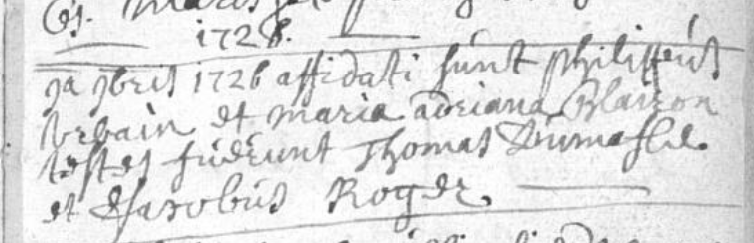 1728.
9a 9bris 1726 affidati sunt philippus
Urbain et maria adriana Blairon
testes fuerunt Thomas
et Jacobus Roger